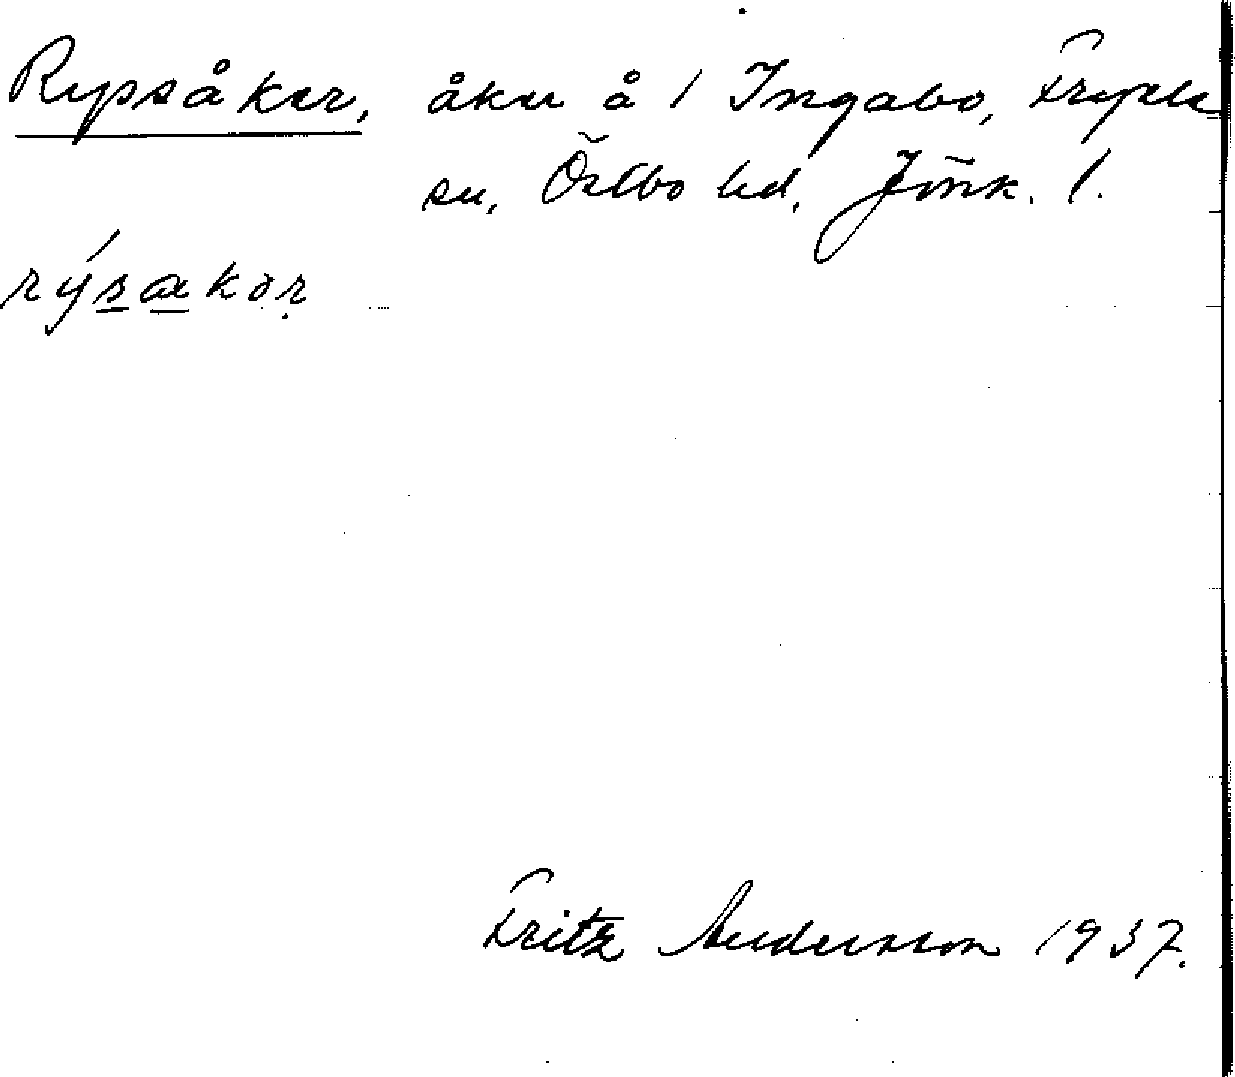 Rypsåker, åker å 1 Ingabo, Fryele
sn, Östbo hd, Jönk. l.
rýsakor
Fritz Andersson 1937.